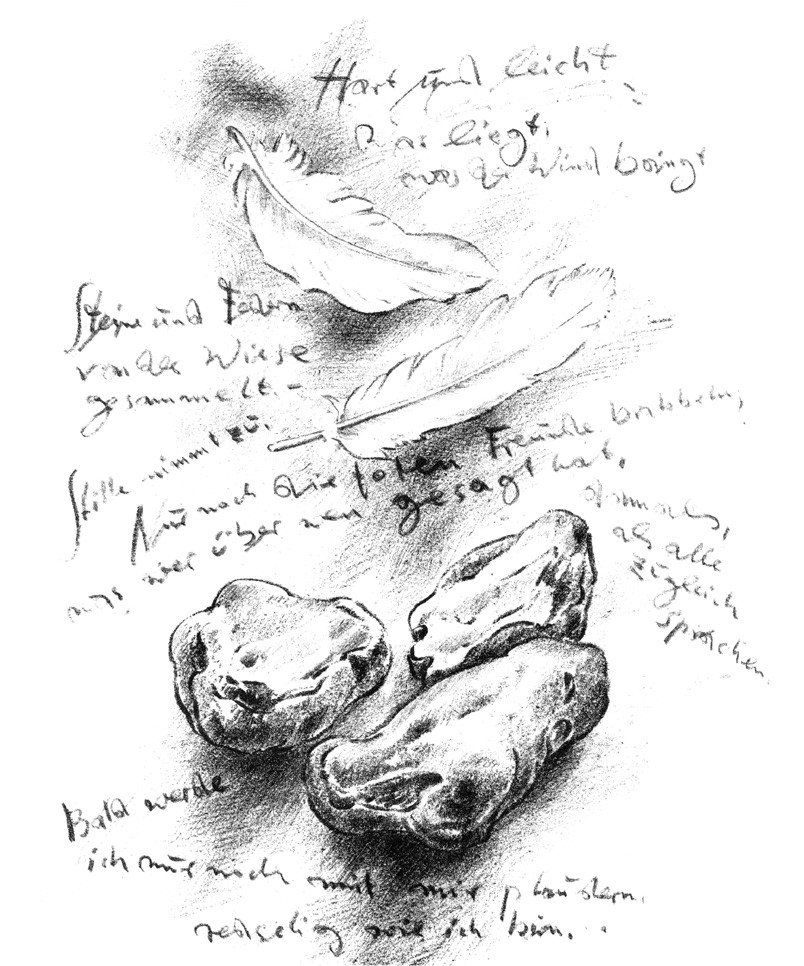 Hart und leicht
Was liegt,
was der Wind bringt
Steine und Federn
von der Wiese
gesammelt. –
Stille nimmt zu.
Nur noch die toten Freunde brabbeln,
was wer über wen gesagt hat,
damals,
als alle
zugleich
sprachen
Bald werde
ich nur noch mit mir plaudern,
redselig wie ich bin...